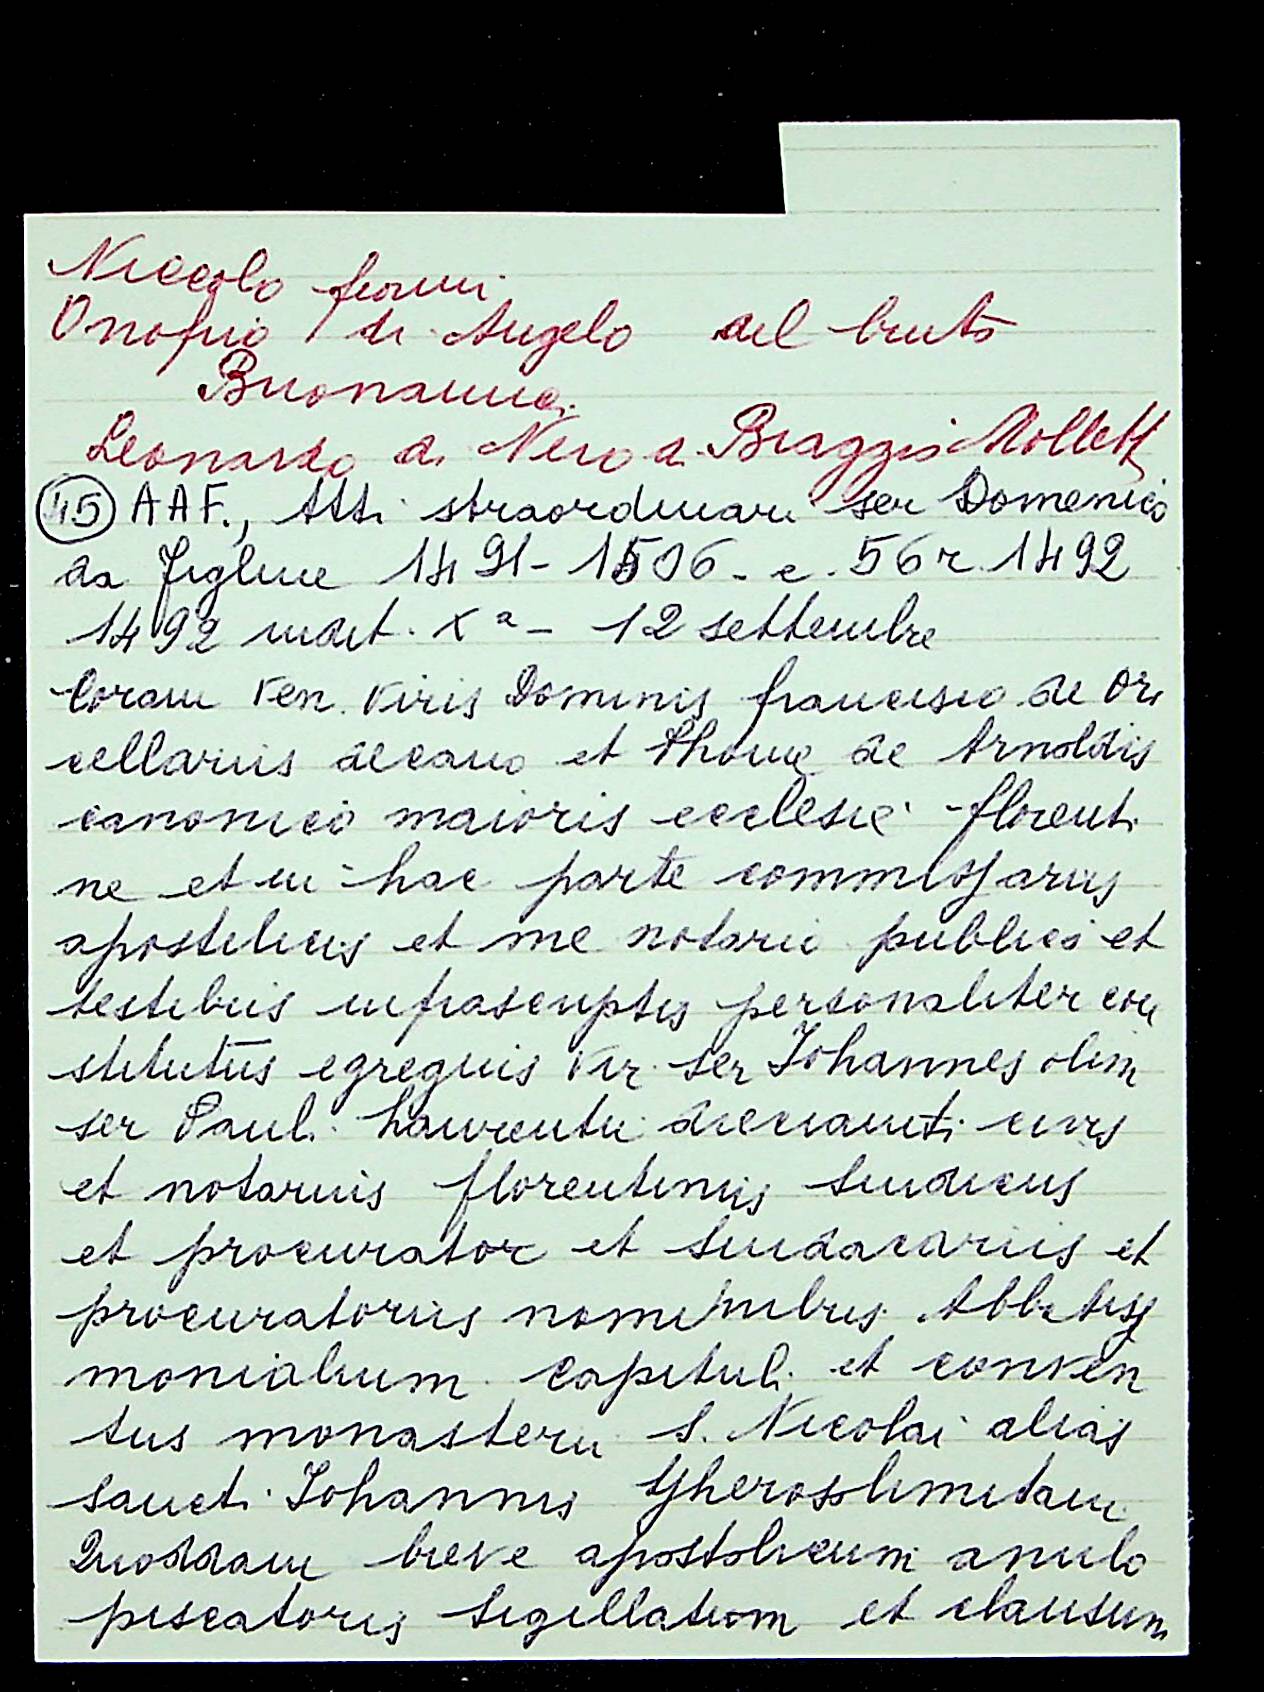 Niccolo
Onofrio di Angelo del
Buonanni
Leonardo di Nero di Braggio Molletti
45 AAF., Atti straordinari ser Domenico
da Figline 1491-1506 - c. 56r. 1492
1492 indict. Xª - 12 settembre
Coram Ven. Viris Dominis francisco de Ori
cellariis decano et Thoma de Arnoldis
canonico maioris ecclesie florenti
ne et in hac parte commissariis
apostolicis et me notario publico et
testibus infrascriptis personaliter con
stitutus egregius Vir ser Johannes olim
ser Pauli Laurentii civis
et notarius florentinus sindicus
et procurator et sindacariis et
procuratoriis nominibus Abbatisse
monialium capituli et conven
tus monasterii S. Nicolai alias
Sancti Johannis Gherosolimitani
Quoddam breve apostolicum anulo
piscatoris sigillatum et clausum